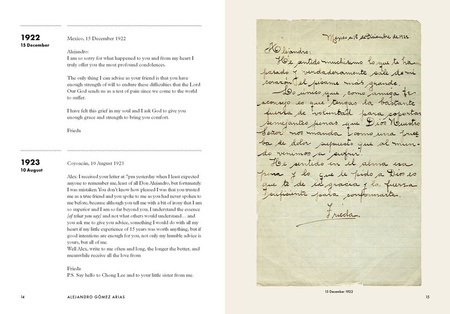 1922
15 December
Mexico, 15 December 1922
Alejandro:
I am so sorry for what happened to you and from my heart I
truly offer you the most profound condolences.
The only thing I can advise as your friend is that you have
enough strength of will to endure these difficulties that the Lord
Our God sends us as a test of pain since we come to the world
to suffer.
I have felt this grief in my soul and I ask God to give you
enough grace and strength to bring you comfort.
Frieda
1923
10 August
Coyoacán, 10 August 1923
Alex: I received your letter at 7pm yesterday when I least expected
anyone to remember me, least of all Don Alejandro, but fortunately
I was mistaken. You don't know how pleased I was that you trusted
me as a true friend and you spoke to me as you had never spoken to
me before, because although you tell me with a bit of irony that I am
so superior and I am so far beyond you, I understand the essence
of what you say and not what others would understand… and
you ask me to give you advice, something I would do with all my
heart if my little experience of 15 years was worth anything, but if
good intentions are enough for you, not only my humble advice is
yours, but all of me.
Well Alex, write to me often and long, the longer the better, and
meanwhile receive all the love from
Frieda
P.S. Say hello to Chong Lee and to your little sister from me.
14
ALEJANDRO GÓMEZ ARIAS
Alejandro:
He sentido muchísimo lo que te ha
pasado y verdaderamente sale de mi
corazón el pésame más grande.
Lo único que como amiga te
aconsejo es que tengas la bastante
fuerza de voluntad para soportar
semejantes penas que Dios Nuestro
Señor nos manda como una prue
ba de dolor supuesto que al mun
do venimos a sufrir.
He sentido en el alma esa
pena y lo que le pido a Dios es
que te dé la gracia y la fuerza
suficiente para conformarte.
Frieda
15 December 1922
15